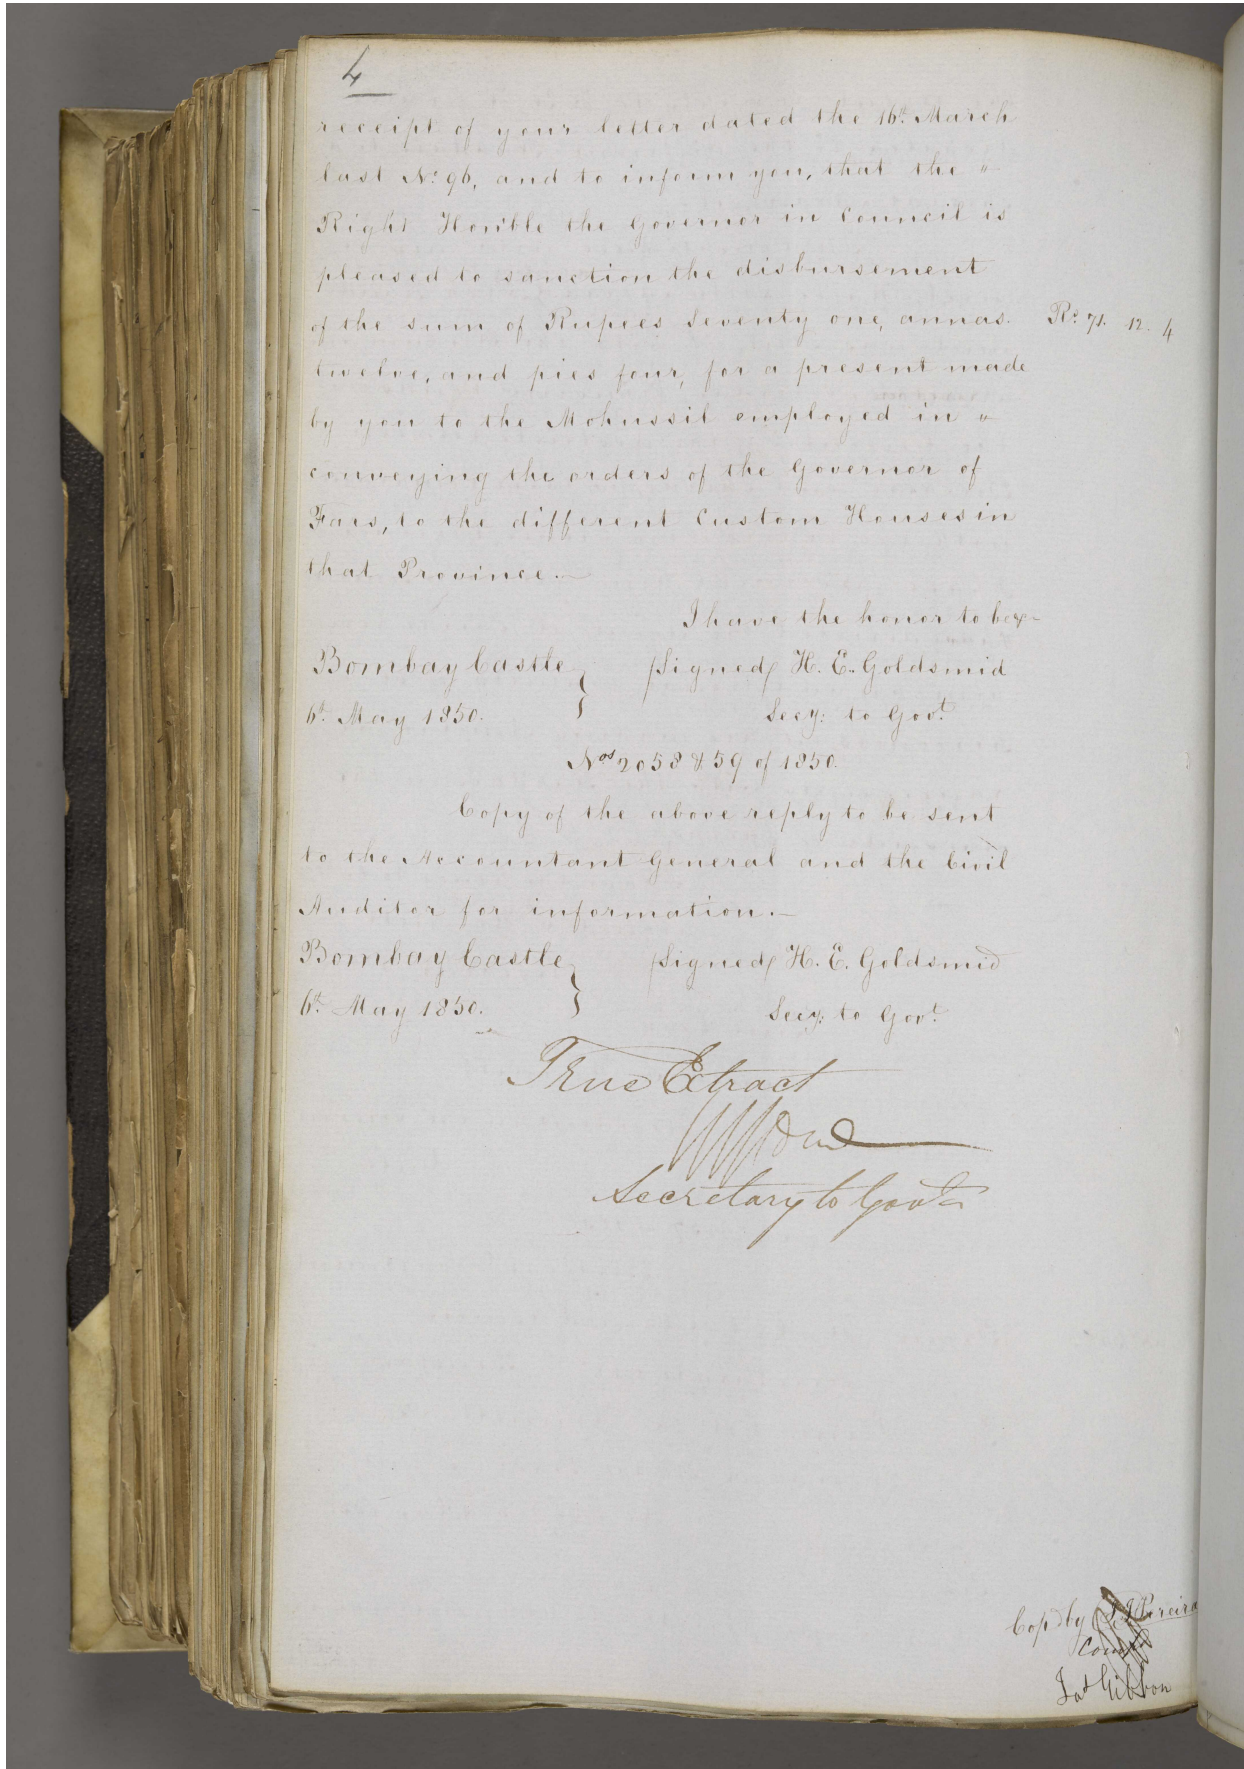 4
receipt of your letter dated the 16th. March
last No. 96, and to inform you, that the "
Right Hon'ble the Governor in Council is
pleased to sanction the disbursement
of the sum of Rupees Seventy one, annas. Rs. 71. 12. 4
twelve, and pies four, for a present made
by you to the Mohussil employed in "
conveying the orders of the Governor of
Fars, to the different Custom Houses in
that Province.—
I have the honor to be &c—
Bombay Castle } /Signed/ H. E. Goldsmid
6th. May 1850. Secy: to Govt.
Nos 2058 & 59 of 1850.
Copy of the above reply to be sent
to the Accountant General and the Civil
Auditor for information.—
Bombay Castle } /Signed/ H. E. Goldsmid
6th. May 1850. Secy: to Govt.
True Extract
Secretary to Govt
Copd by Pereira
Jas Gibbon